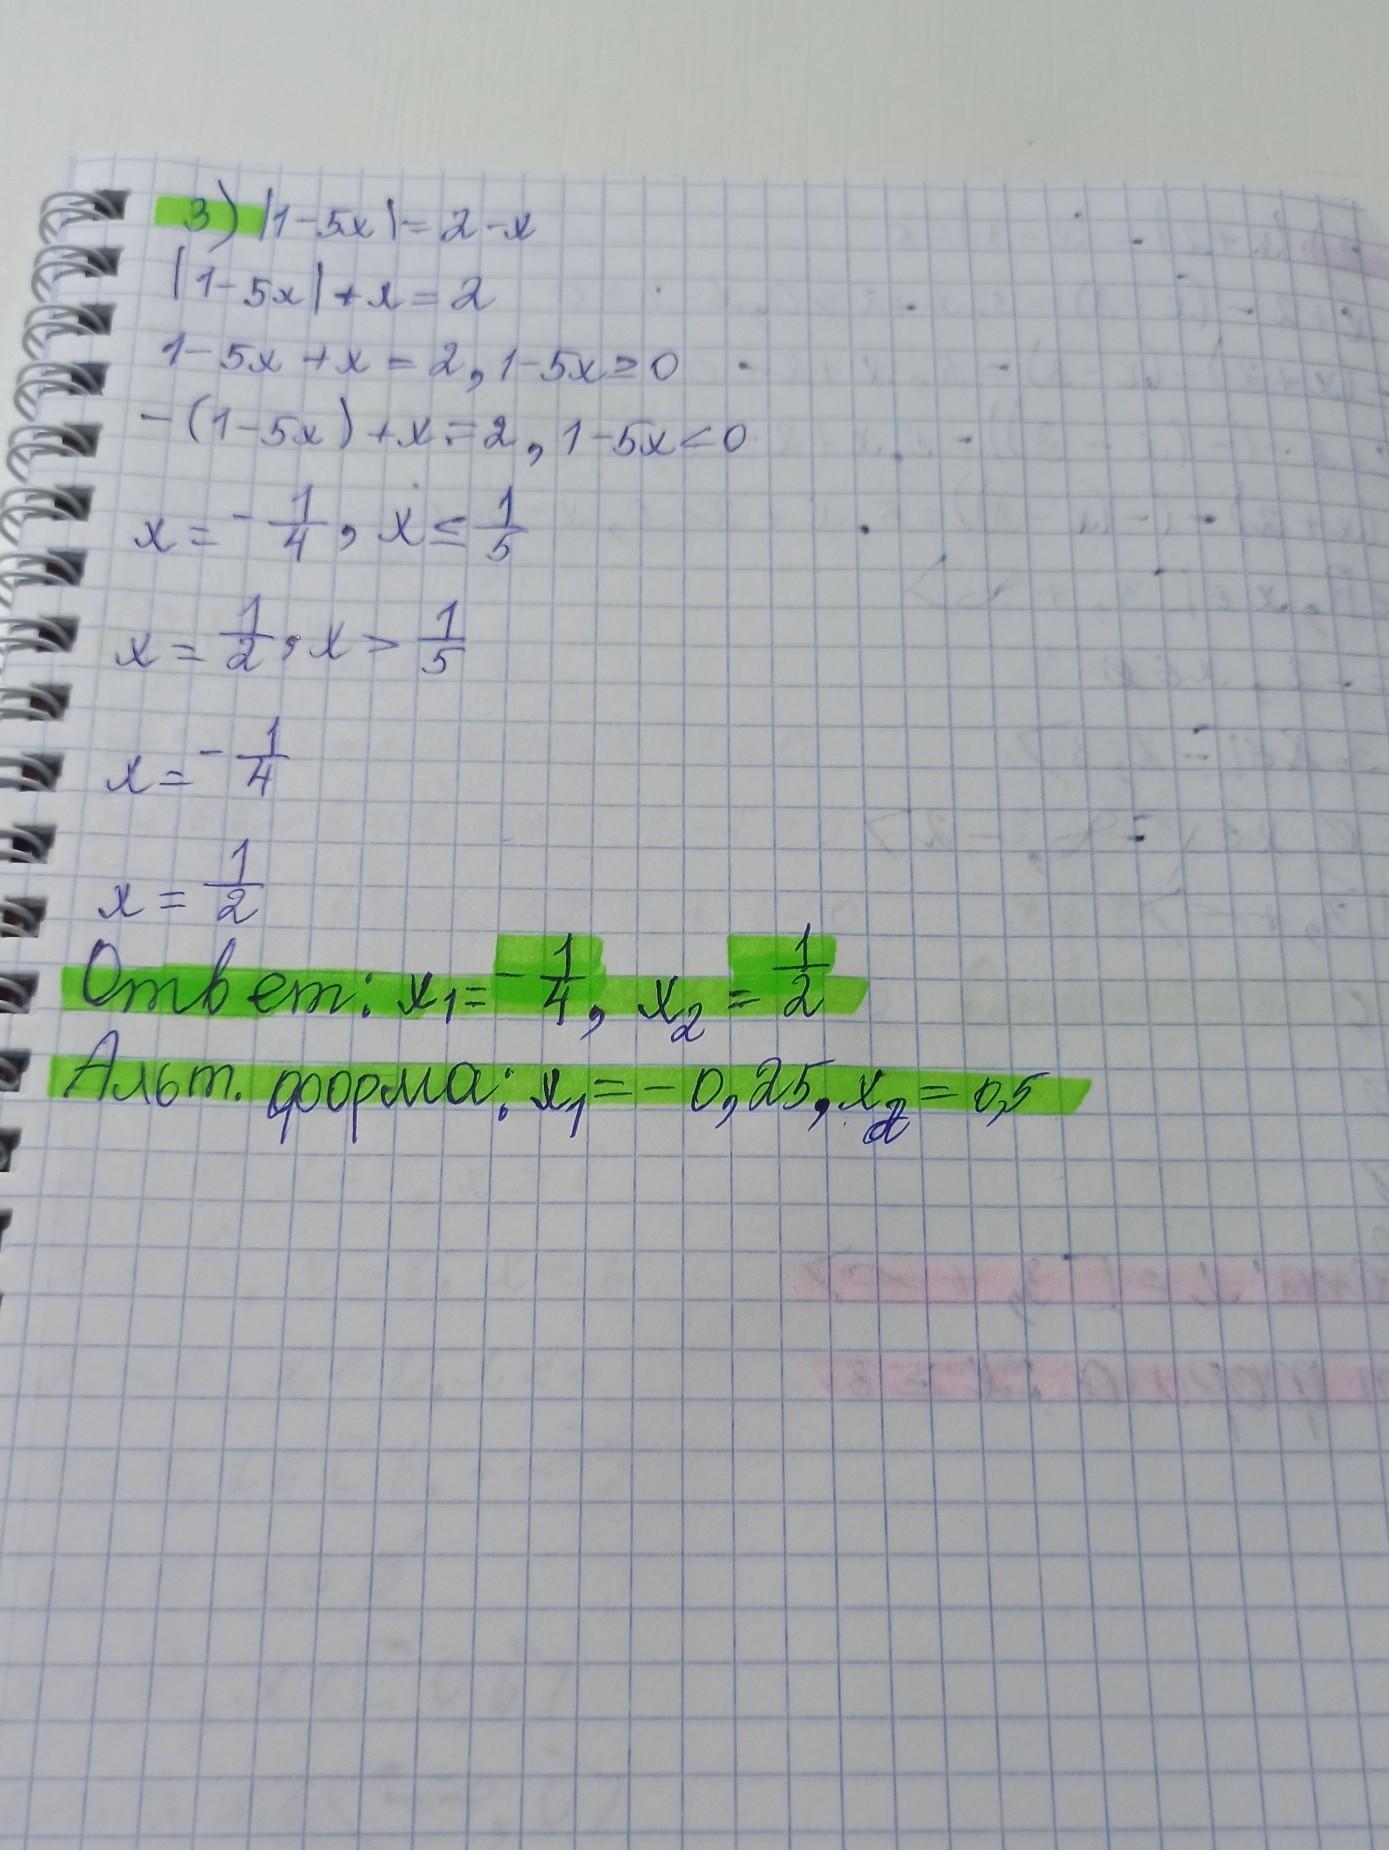 3) |1-5x| = 2-x
|1-5x| + x = 2
1-5x+x = 2, 1-5x ≥ 0
-(1-5x)+x = 2, 1-5x < 0
x = -1/4, x ≤ 1/5
x = 1/2, x > 1/5
x = -1/4
x = 1/2
Ответ: x₁ = -1/4, x₂ = 1/2
Альт. форма: x₁ = -0,25, x₂ = 0,5